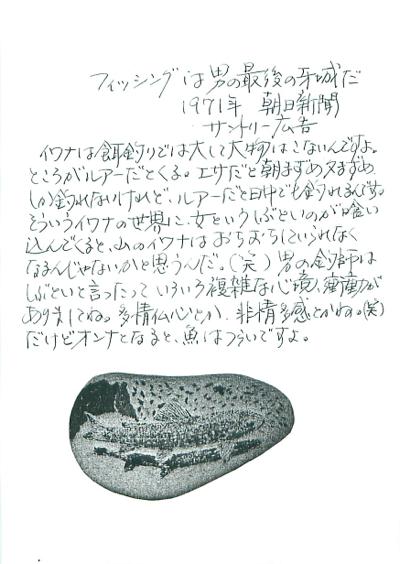 フィッシングは男の最後の牙城だ
1971年 朝日新聞
サントリー広告
イワナは餌釣りでは大して大物はこないんですよ。
ところがルアーだとくる。エサだと朝まずめ夕まずめ
しか釣れないけれど、ルアーだと日中でも釣れるんです。
そういうイワナの世界に、女というしぶといのが喰い
込んでくると、山のイワナはおちおちしていられなく
なるんじゃないかと思うんだ。(笑) 男の釣師は
しぶといと言ったっていろいろ複雑な心境、衝動が
ありましてね。多情仏心とか、非情多感とかね。(笑)
だけどオンナとなると、魚はつらいですよ。